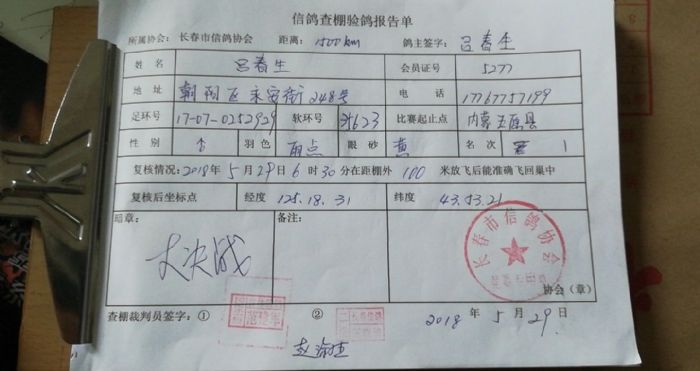 信鸽查棚验鸽报告单
所属协会：长春市信鸽协会 距离：1500km 鸽主签字：吕春生
姓名 吕春生 会员证号 5277
地址 朝阳区永安街248号 电话 17767757199
足环号 17-07-0252929 软环号 623 比赛起止点 内蒙五原县
性别 ♂ 羽色 雨点 眼砂 黄 名次 1
复核情况：2018年5月29日6时30分在距棚外100米放飞后能准确飞回巢中
复核后坐标点 经度 125.18.31 纬度 43.53.21
暗章： 备注：
大决战
长春市信鸽协会
协会（章）
查棚裁判员签字：① ②
2018年5月29日